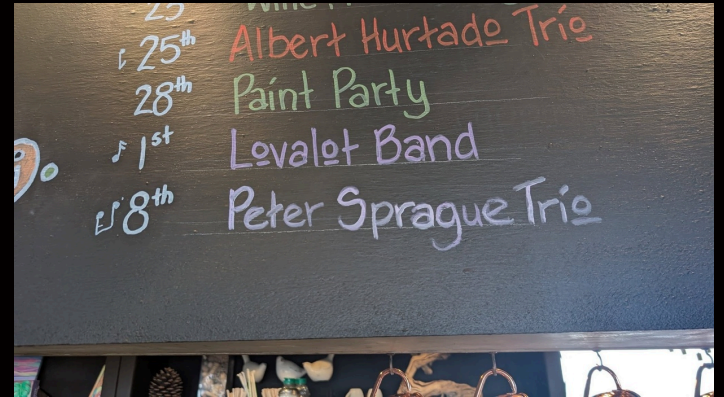 25th Albert Hurtado Trio
28th Paint Party
1st Lovalot Band
8th Peter Sprague Trio